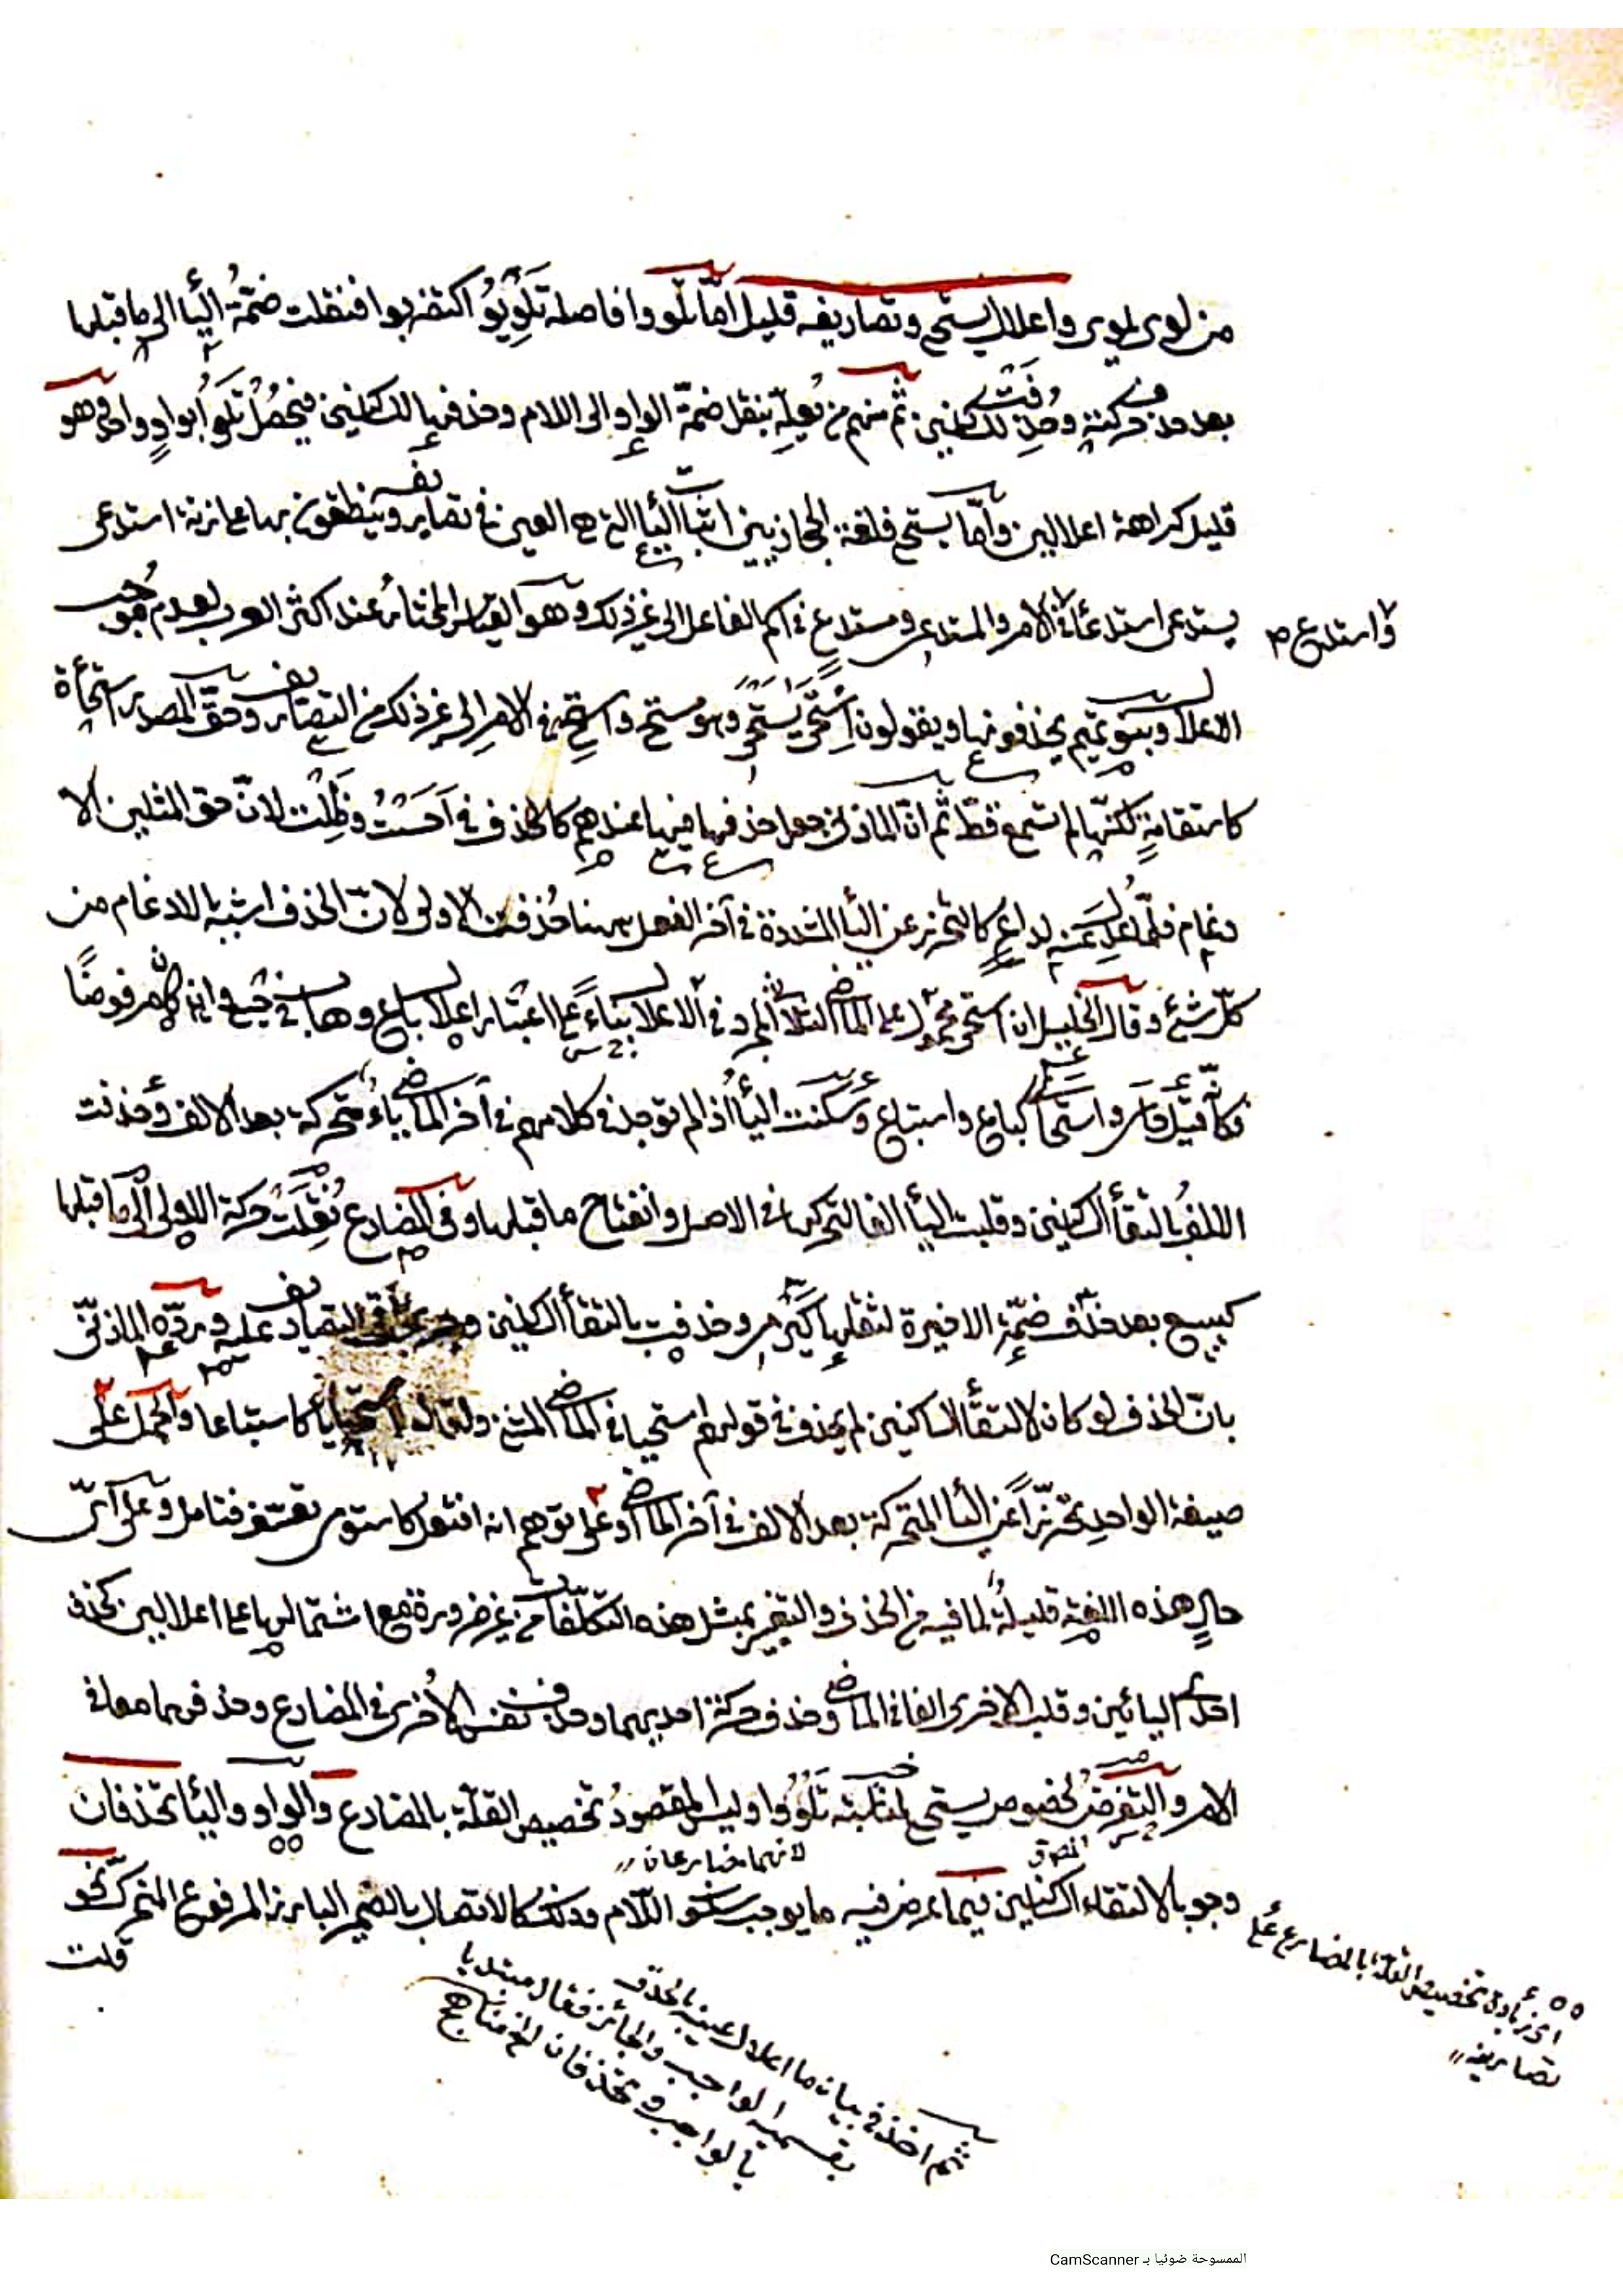 من لوى يلوى واعلال يستحي وتصاريفه قليل امّا تلووا فاصله تَلْوِيُوْ اكتقربوا فنقلت ضمّةُ اليأ الى ما قبلها
بعد حذف حركته وحُذِفَتْ للساكنين ثم منهم من يُعِلّه بنقل ضمّة الواو الى اللام وحذفها للساكنين فيحصُلُ تَلُو أبواوٍ واحدٍ وهو
قليل كراهة اعلالين وأمّا يستحي فلغة الحجازيين اثبات اليأ التي هي العين في تصاريفه وينطقون بها على زنة استدعى
يستدعى استدعأ في الأمر والمستدعى ومستدعٍ في اسم الفاعل الى غير ذلك وهو القياس المختار عند اكثر العرب لعدم موجب
واستدع صح
الاعلال وبنو تميم يحذفونها ويقولون اِسْتَحَى يَسْتَحِي وهو مستحٍ واستحِ في الامر الى غير ذلك من التصاريف وحقّ المصدر استحأة
كاستقامةٍ لكنّها لم تسمع قطّ ثم انّ المازنى جعل حذفها فيها عندهم كالحذف في اَحَسْتُ وظِلْت لانّ حق المثلين الا
دغام فلمّا عُدِل عنه لداعٍ كالتحرز عن اليأ المشددة في آخر الفعل ههنا حُذفت الاولى لانّ الحذف اشبه بالادغام من
كلّ شئ وقال الخليل ان استحى محمول على الماضى الثلاثى المجرد في الاعلال بناءً على اعتبار اعلال باع وهاب في حيى وان كان مرفوضًا
فكأنّه قيل حاى واستحاى كباع واستباع وسكنت اليأ اذ لم توجد في كلامهم في آخر الماضى ياء متحركة بعد الالف وحذفت
الالف لالتقأ الساكنين وقلبت اليأ الفا لتحركها في الاصل وانفتاح ما قبلها وفى المضارع نُقِلَتْ حركة الاولى الى ما قبلها
كيبيع بعد حذف ضمّة الاخيرة لثقلها كيرمى وحذفت بالتقأ الساكنين وعلى التصاريف عليه وردّه المازنىّ
بانّ الحذف لو كان لالتقأ الساكنين لم يحذف في قولهم استحيا في الماضى المثنى ولقال استحايا كاستباعا والحمل على
صيغة الواحد تحرّزاً عن اليأ المتحركة بعد الالف في آخر الماضى او على توهم انه افتعل كاستوى تعسّف فتامل وعلى اىّ
حالٍ هذه اللغة قليلةٌ لما فيه من الحذف والتغيير بمثل هذه التكلّفات من غير ضرورة مع اشتمالها على اعلالين بحذف
احدى اليائين وقلب الاخرى الفا في الماضى وحذف حركة احديهما وحذف نفس الأُخرى في المضارع وحذفهما معا في
الامر والتعرض لخصوص يستحي لمناسبة تَلْوُوا وليس المقصودُ تخصيص القلّة بالمضارع والواو واليأ تحذفان
لانهما مضارعان
وجوبا لالتقاء الساكنين فيما عرض فيه ما يوجب سكون اللّام وذلك كالاتصال بالضمير البارز المرفوع المتحرك نحو
قلت
اى زيادة تخصيص القلة بالمضارع على
تصاريفه
ثم اخذ في بيان ما اعلال عينه بالحذف
بقسميه الواجب والجائز فقال مبتديا
بالواجب وتحذفان الخ مناهج
الممسوحة ضوئيا بـ CamScanner